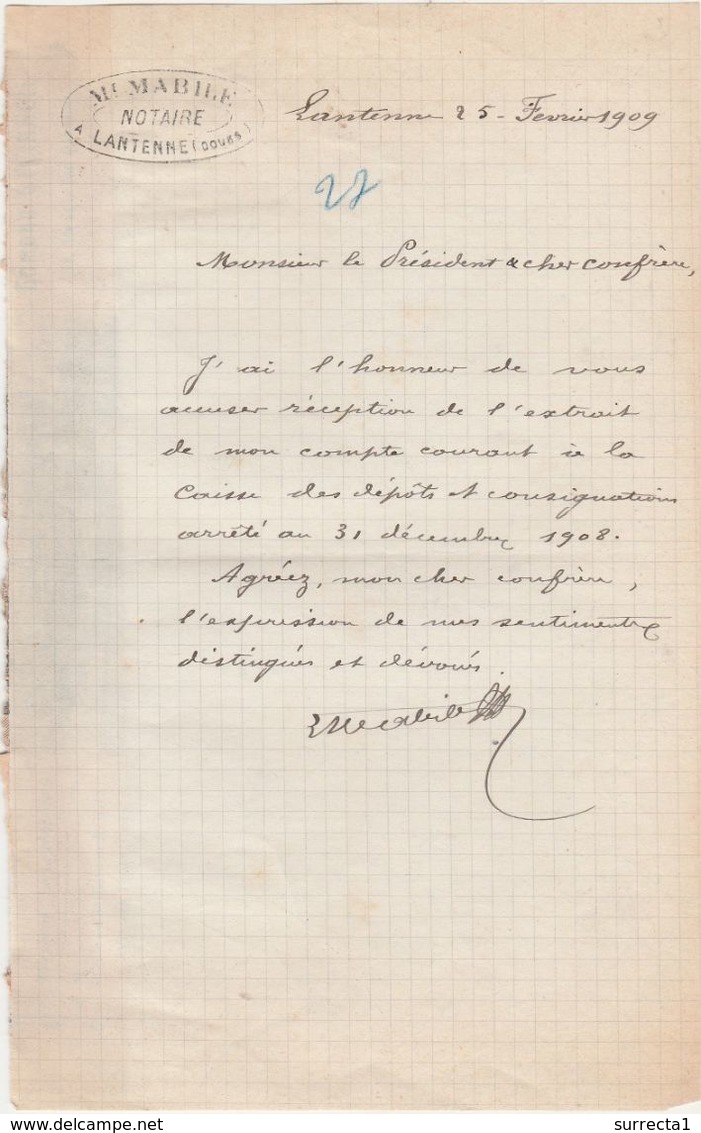 Me MABILE
NOTAIRE
A LANTENNE (DOUBS)
Lantenne 25 - Fevrier 1909
27
Monsieur le Président & cher confrère,
J'ai l'honneur de vous
accuser réception de l'extrait
de mon compte courant à la
Caisse des dépôts et consignations
arrêté au 31 décembre 1908.
Agréez, mon cher confrère,
l'expression de mes sentiments
distingués et dévoués.
EMabile
www.delcampe.net
surrecta1